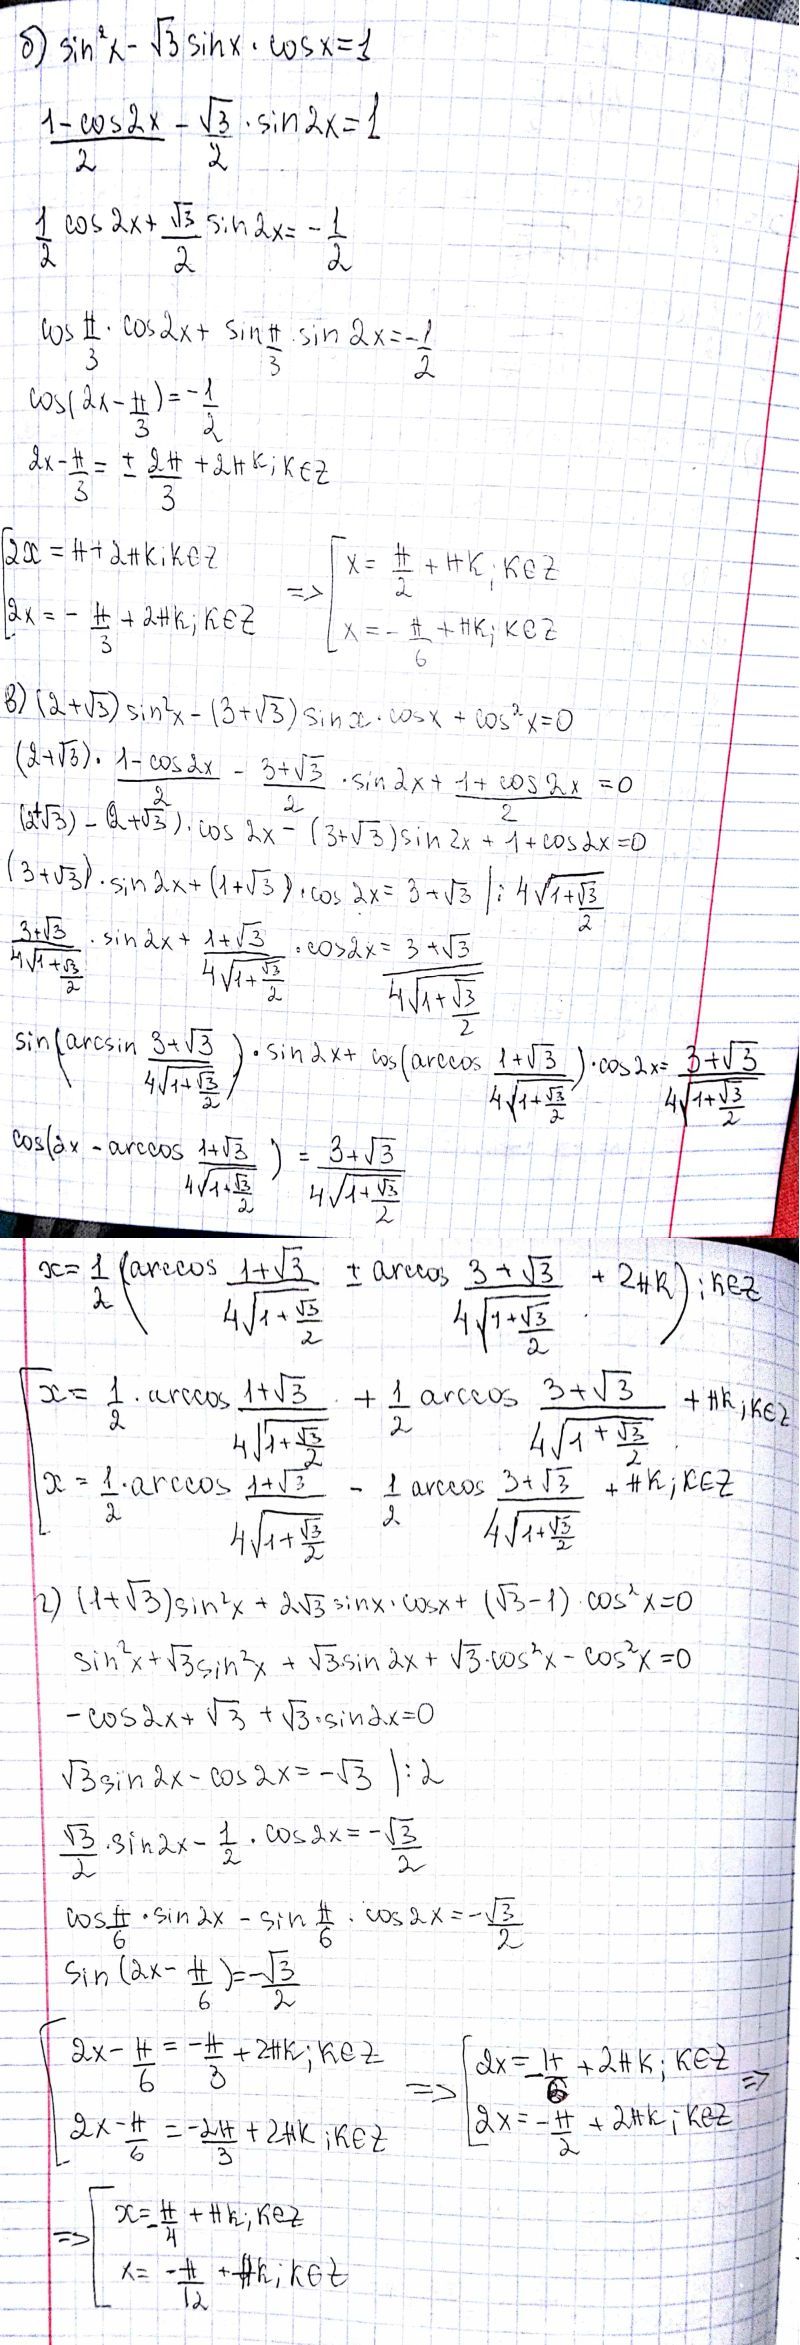 б) sin²x - √3 sinx · cosx = 1
(1 - cos2x)/2 - √3/2 · sin2x = 1
1/2 cos2x + √3/2 sin2x = -1/2
cos π/3 · cos2x + sin π/3 · sin2x = -1/2
cos(2x - π/3) = -1/2
2x - π/3 = ± 2π/3 + 2πk; k∈Z
[2x = π + 2πk; k∈Z => [x = π/2 + πk; k∈Z
[2x = -π/3 + 2πk; k∈Z [x = -π/6 + πk; k∈Z
в) (2+√3) sin²x - (3+√3) sinx · cosx + cos²x = 0
(2+√3) · (1 - cos2x)/2 - (3+√3)/2 · sin2x + (1 + cos2x)/2 = 0
(2+√3) - (2+√3) · cos2x - (3+√3) sin2x + 1 + cos2x = 0
(3+√3) · sin2x + (1+√3) · cos2x = 3+√3 | : 4√(1+√3/2)
(3+√3)/(4√(1+√3/2)) · sin2x + (1+√3)/(4√(1+√3/2)) · cos2x = (3+√3)/(4√(1+√3/2))
sin(arcsin (3+√3)/(4√(1+√3/2))) · sin2x + cos(arccos (1+√3)/(4√(1+√3/2))) · cos2x = (3+√3)/(4√(1+√3/2))
cos(2x - arccos (1+√3)/(4√(1+√3/2))) = (3+√3)/(4√(1+√3/2))
x = 1/2 (arccos (1+√3)/(4√(1+√3/2)) ± arccos (3+√3)/(4√(1+√3/2)) + 2πk); k∈Z
[x = 1/2 · arccos (1+√3)/(4√(1+√3/2)) + 1/2 arccos (3+√3)/(4√(1+√3/2)) + πk; k∈Z
[x = 1/2 · arccos (1+√3)/(4√(1+√3/2)) - 1/2 arccos (3+√3)/(4√(1+√3/2)) + πk; k∈Z
г) (1+√3) sin²x + 2√3 sinx · cosx + (√3-1) · cos²x = 0
sin²x + √3 sin²x + √3 sin2x + √3 · cos²x - cos²x = 0
-cos2x + √3 + √3 · sin2x = 0
√3 sin2x - cos2x = -√3 | : 2
√3/2 · sin2x - 1/2 · cos2x = -√3/2
cos π/6 · sin2x - sin π/6 · cos2x = -√3/2
sin(2x - π/6) = -√3/2
[2x - π/6 = -π/3 + 2πk; k∈Z => [2x = -π/6 + 2πk; k∈Z =>
[2x - π/6 = -2π/3 + 2πk; k∈Z [2x = -π/2 + 2πk; k∈Z
=> [x = -π/4 + πk; k∈Z
[x = -π/12 + πk; k∈Z